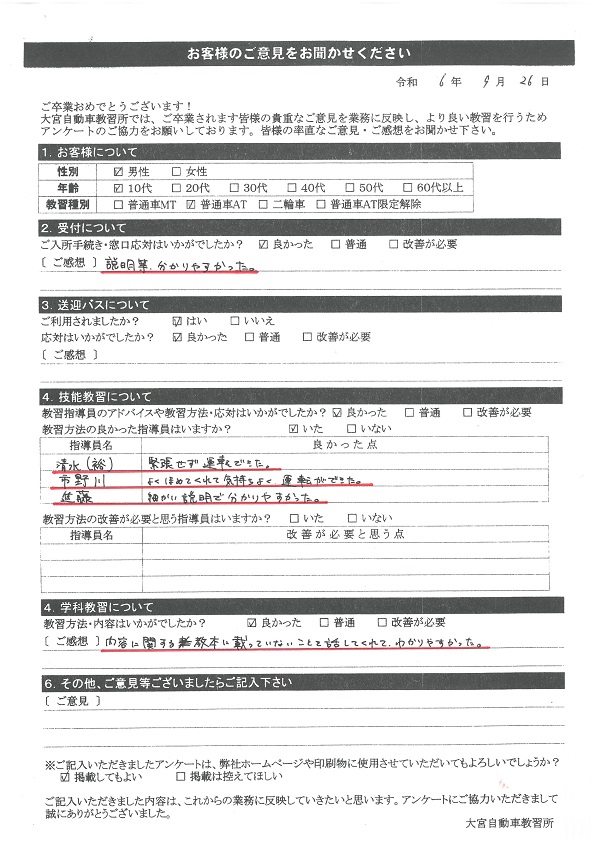 お客様のご意見をお聞かせください
令和 6 年 9 月 26 日
ご卒業おめでとうございます！
大宮自動車教習所では、ご卒業されます皆様の貴重なご意見を業務に反映し、より良い教習を行うため
アンケートのご協力をお願いしております。皆様の率直なご意見・ご感想をお聞かせ下さい。
1. お客様について
性別 ☑ 男性 □ 女性
年齢 ☑ 10代 □ 20代 □ 30代 □ 40代 □ 50代 □ 60代以上
教習種別 □ 普通車MT ☑ 普通車AT □ 二輪車 □ 普通車AT限定解除
2. 受付について
ご入所手続き・窓口応対はいかがでしたか？ ☑ 良かった □ 普通 □ 改善が必要
〔 ご感想 〕 説明等、分かりやすかった。
3. 送迎バスについて
ご利用されましたか？ ☑ はい □ いいえ
応対はいかがでしたか？ ☑ 良かった □ 普通 □ 改善が必要
〔 ご感想 〕
4. 技能教習について
教習指導員のアドバイスや教習方法・応対はいかがでしたか？ ☑ 良かった □ 普通 □ 改善が必要
教習方法の良かった指導員はいますか？ ☑ いた □ いない
指導員名 良かった点
清水（裕） 緊張せず運転できた。
市野川 よくほめてくれて気持ちよく運転ができた。
進藤 細かい説明で分かりやすかった。
教習方法の改善が必要と思う指導員はいますか？ □ いた □ いない
指導員名 改善が必要と思う点
4. 学科教習について
教習方法・内容はいかがでしたか？ ☑ 良かった □ 普通 □ 改善が必要
〔 ご感想 〕 内容に関する教本に載っていないことを話してくれて、わかりやすかった。
6. その他、ご意見等ございましたらご記入下さい
〔 ご意見 〕
※ご記入いただきましたアンケートは、弊社ホームページや印刷物に使用させていただいてもよろしいでしょうか？
☑ 掲載してもよい □ 掲載は控えてほしい
ご記入いただきました内容は、これからの業務に反映していきたいと思います。アンケートにご協力いただきまして
誠にありがとうございました。
大宮自動車教習所